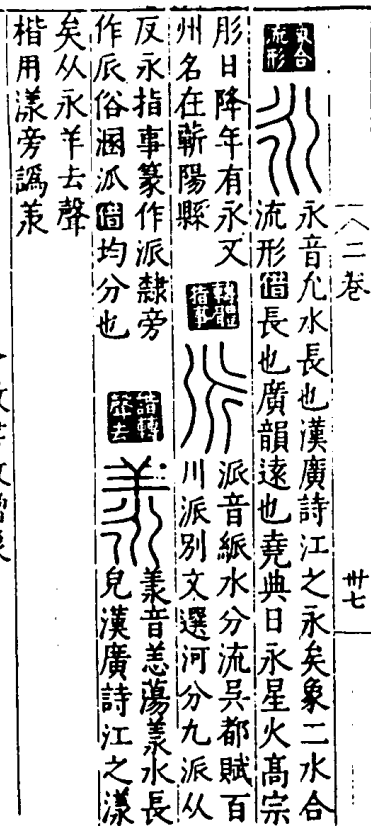 二卷 卅七
合
流形
永音允水長也漢廣詩江之永矣象二水合
流形借長也廣韻遠也堯典日永星火高宗
肜日降年有永又
州名在蘄陽縣
轉體
指事
派音紙水分流吳都賦百
川派別文選河分九派从
反永指事篆作派隸旁
作𠂢俗溷泒借均分也
諧轉
聲去
羕音恙蕩羕水長
皃漢廣詩江之漾
矣从永羊去聲
楷用漾旁譌羕